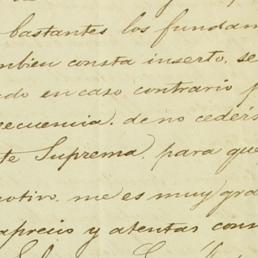 bastantes los fundam
mbien consta inserto, se
do en caso contrario p
ecuencia, de no ceders
te Suprema, para que
otivo, me es muy gra
aprecio y atentas cons